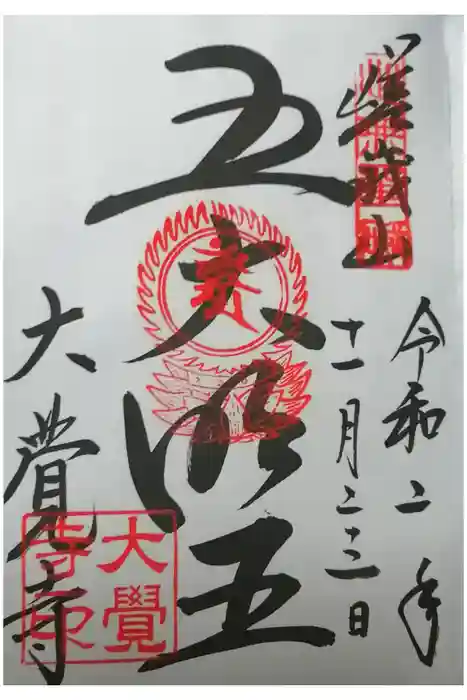 嵯峨山
令和二年
十一月二十三日
五大明王
大覺寺
大覺寺印